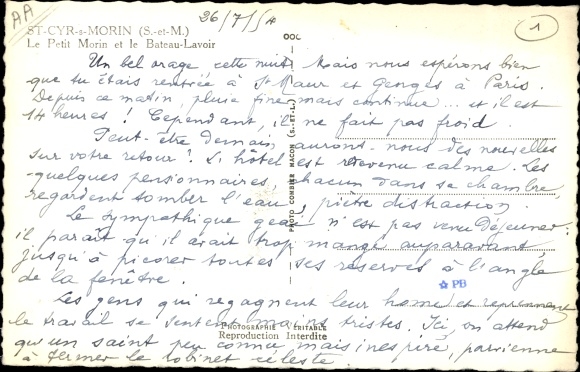 AA
26/7/54
1
ST-CYR-s-MORIN (S.-et-M.)
Le Petit Morin et le Bateau-Lavoir
Un bel orage cette nuit. Mais nous espérons bien
que tu étais rentrée à St Maur et Georges à Paris.
Depuis ce matin, pluie fine mais continue... et il est
14 heures ! Cependant, il ne fait pas froid.
Peut-être demain aurons-nous des nouvelles
sur votre retour ! L'hôtel est redevenu calme. Les
quelques pensionnaires, chacun dans sa chambre
regardent tomber l'eau, piètre distraction.
Le sympathique geai n'est pas venu déjeuner :
il paraît qu'il avait trop mangé auparavant
jusqu'à picorer toutes ses réserves à l'angle
de la fenêtre.
PB
Les gens qui regagnent leur home et reprennent
le travail se sentent moins tristes. Ici, on attend
qu'un saint peu connu, mais inspiré, parvienne
à fermer le robinet céleste.
PHOTOGRAPHIE VÉRITABLE
Reproduction Interdite
PHOTO COMBIER MACON (S.-et-L.)